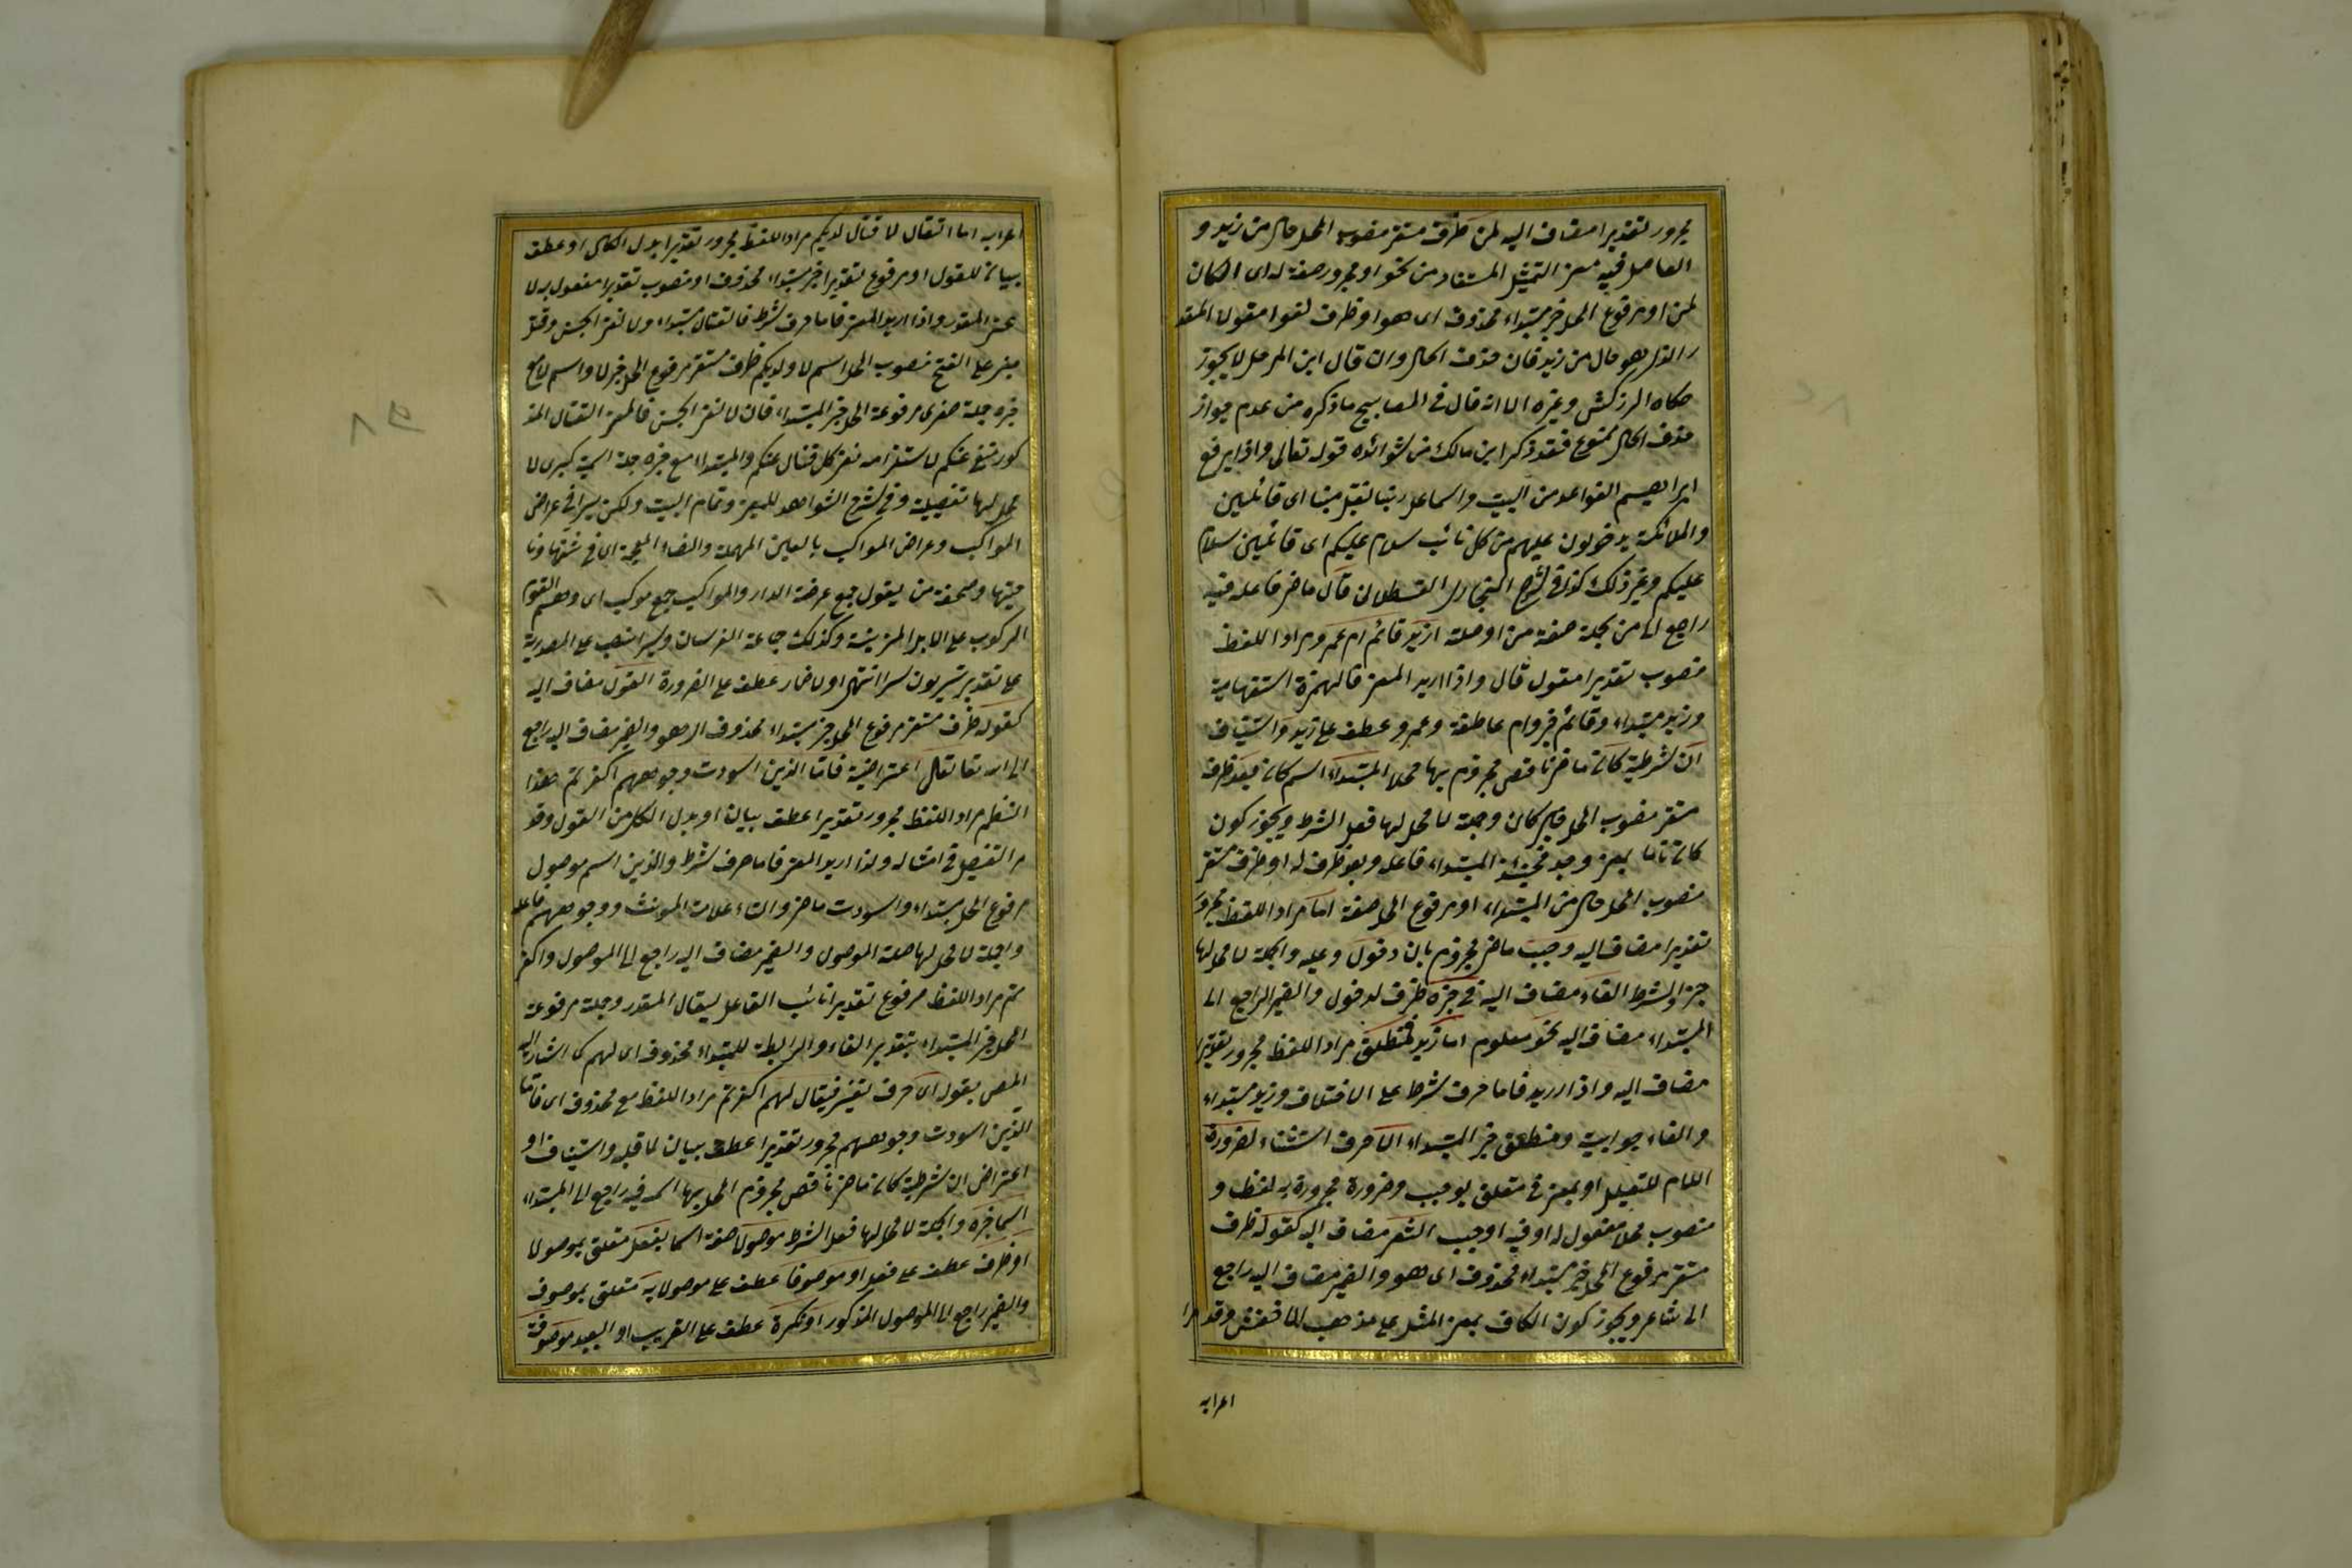 مجرور تقديرا مضاف اليه لمن ظرف مستقر منصوب المحل حال من زيد و
العامل فيه معنى التمثيل المستفاد من نحو او مجرور صفة له اى الكائن
لمن او مرفوع المحل خبر مبتداء محذوف اى هو او ظرف لغو
الذى هو حال من زيد فان حذف الحال وان قال ابن المرحل لا يجوز
حكاه الزركشى وغيره الا انه قال فى المصابيح ما ذكره من عدم جواز
حذف الحال ممنوع فقد ذكر ابن مالك من شوائده قوله تعالى واذ يرفع
ابراهيم القواعد من البيت واسماعيل ربنا تقبل منا اى قائلين
والملائكة يدخلون عليهم من كل باب سلام عليكم اى قائلين سلام
عليكم وغير ذلك كذا فى شرح البخارى القسطلانى قال ماض فاعله فيه
راجع الى من بجملة صفة من او صلة ازيد قائم ام عمرو مراد اللفظ
منصوب تقديرا مقول قال واذا اريد المعنى فالهمزة استفهامية
وزيد مبتداء وقائم خبر وام عاطفة وعمرو عطف على زيد واستيناف
ان شرطية كان ماض ناقص مجزوم بها محلا المبتداء اسم كان بعد ظرف
مستقر منصوب المحل خبر كان وجملة لا محل لها فعل الشرط ويجوز كون
كان تاما بمعنى وجد فحينئذ المبتداء فاعله وبعد ظرف له او ظرف مستقر
منصوب المحل حال من المبتداء او مرفوع المحل صفة اما مراد اللفظ مجرور
تقديرا مضاف اليه وجب ماض مجزوم بان دخول وعليه والجملة لا محل لها
جزاء الشرط الفاء مضاف اليه فى خبره ظرف لدخول والضمير الراجع الى
المبتداء مضاف اليه نحو معلوم اما زيد فمنطلق مراد اللفظ مجرور تقديرا
مضاف اليه واذا اريد فاما حرف شرط على الاختلاف وزيد مبتداء
والفاء جوابية ومنطلق خبر المبتداء الا حرف استثناء لضرورة
اللام للتعليل او بمعنى فى متعلق بوجب وضرورة مجرورة به لفظا و
منصوب محلا مفعول له او فيه لوجب الشعر مضاف اليه كقوله ظرف
مستقر مرفوع المحل خبر مبتداء محذوف اى هو والضمير مضاف اليه راجع
الى شاعر ويجوز كون الكاف بمعنى المثل على مذهب الاخفش وقد مرا
اعرابه
اعرابه اما القتال لا قتال لديكم مراد اللفظ مجرور تقديرا بدل الكل او عطف
بيان للقول او مرفوع تقديرا خبر مبتداء محذوف او منصوب تقديرا مفعول به لا
عنى المقدر واذا اريد المعنى فاما حرف شرط فالقتال مبتداء ولا لنفى الجنس وقتال
مبنى على الفتح منصوب المحل اسم لا ولديكم ظرف مستقر مرفوع المحل خبر لا واسم لا مع
خبره جملة صغرى مرفوعة المحل خبر المبتداء فان لا لنفى الجنس فالمعنى القتال المذ
كور منفى عنكم لاستلزامه نفى كل قتال عنكم والمبتداء مع خبره جملة اسمية كبرى لا
محل لها تفصيلية وفى شرح الشواهد للعينى وتمام البيت ولكن سيرا فى عراض
المواكب وعراض المواكب بالعين المهملة والضاد المعجمة اى فى شقها ونا
حيتها وصحفه من يقول جمع عرضة الدار والمواكب جمع موكب اى وهم القوم
الركوب على الابل المزينة وكذلك جماعة الفرسان وسيرا نصب على المصدرية
على تقدير تسيرون سيرا انتهى او لاضمار عطف على الضرورة القول مضاف اليه
كقوله ظرف مستقر مرفوع المحل خبر مبتداء محذوف اى هو والضمير مضاف اليه راجع
الى الله تعا تعالى اعتراضية فاما الذين اسودت وجوههم اكفرتم هذا
النظم مراد اللفظ مجرور تقديرا عطف بيان او بدل الكل من القول وقد
مر التفصيل فى امثاله واذا اريد المعنى فاما حرف شرط والذين اسم موصول
مرفوع المحل مبتداء واسودت ماض والتاء علامة المونث ووجوههم فاعله
والجملة لا محل لها صلة الموصول والضمير مضاف اليه راجع الى الموصول واكفر
تم مراد اللفظ مرفوع تقديرا نائب الفاعل ليقال المقدر وجملة مرفوعة
المحل خبر المبتداء بتقدير الفاء والرابطة للمبتداء محذوف اى لهم كما اشار اليه
المص بقوله اى حرف تفسير فيقال لهم اكفرتم مراد اللفظ مع محذوف اى فاما
الذين اسودت وجوههم مجرور تقديرا عطف بيان لما قبله واستيناف او
اعتراض ان شرطية كان ماض ناقص مجزوم المحل بها اسمه فيه راجع الى المبتداء
اسما خبره والجملة لا محل لها فعل الشرط موصولا صفة اسما بفعل متعلق بموصولا
او ظرف عطف على فعل او موصوفا عطف على موصولا به متعلق بموصوف
والضمير راجع الى الموصول المذكور او نكرة عطف على القريب او البعيد موصوفة